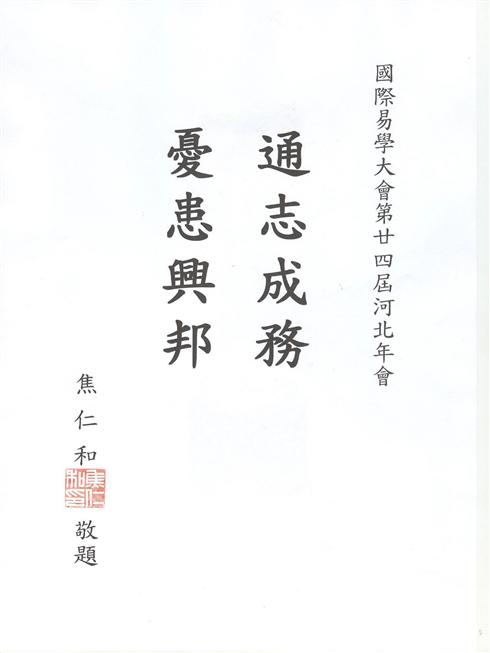 國際易學大會第廿四屆河北年會
通志成務
憂患興邦
焦仁和 敬題
焦仁和印